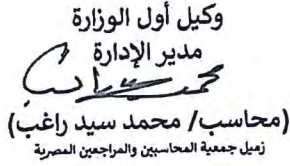 وكيل أول الوزارة
مدير الإدارة
(محاسب/ محمد سيد راغب)
زميل جمعية المحاسبين والمراجعين المصرية